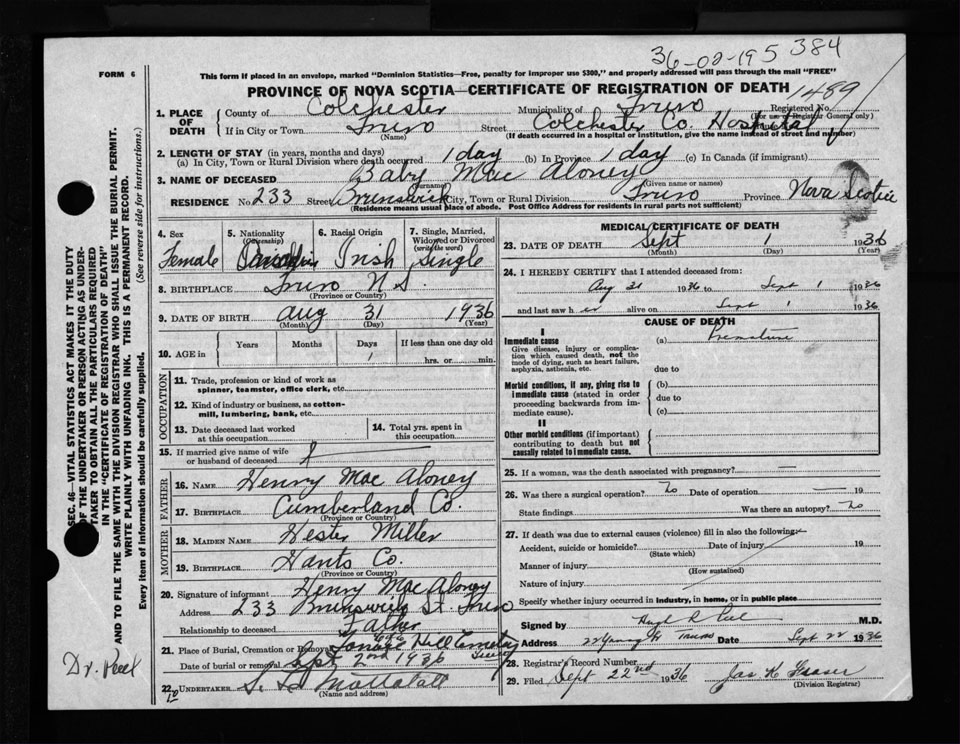 36-02-195384
FORM 6
This form if placed in an envelope, marked "Dominion Statistics—Free, penalty for improper use $300," and properly addressed will pass through the mail "FREE"
PROVINCE OF NOVA SCOTIA—CERTIFICATE OF REGISTRATION OF DEATH
1. PLACE OF DEATH County of Colchester Municipality of Truro Registered No. 1489
(For use of Registrar General only)
If in City or Town Truro (Name) Street Colchester Co. Hospital
(If death occurred in a hospital or institution, give the name instead of street and number)
2. LENGTH OF STAY (in years, months and days)
(a) In City, Town or Rural Division where death occurred 1 day (b) In Province 1 day (c) In Canada (if immigrant)
3. NAME OF DECEASED Baby Mac Aloney
(Surname) (Given name or names)
RESIDENCE No. 233 Street Brunswick City, Town or Rural Division Truro Province Nova Scotia
(Residence means usual place of abode. Post Office Address for residents in rural parts not sufficient)
4. Sex Female
5. Nationality (Citizenship) Canadian
6. Racial Origin Irish
7. Single, Married, Widowed or Divorced (write the word) Single
8. BIRTHPLACE Truro N.S.
(Province or Country)
9. DATE OF BIRTH Aug 31 1936
(Month) (Day) (Year)
10. AGE in Years Months Days If less than one day old
1 hrs. or min.
OCCUPATION
11. Trade, profession or kind of work as spinner, teamster, office clerk, etc.
12. Kind of industry or business, as cotton-mill, lumbering, bank, etc.
13. Date deceased last worked at this occupation
14. Total yrs. spent in this occupation
15. If married give name of wife or husband of deceased
FATHER
16. NAME Henry Mac Aloney
17. BIRTHPLACE Cumberland Co.
(Province or Country)
MOTHER
18. MAIDEN NAME Hester Miller
19. BIRTHPLACE Hants Co.
(Province or Country)
20. Signature of informant Henry Mac Aloney
Address 233 Brunswick St. Truro
Relationship to deceased Father
21. Place of Burial, Cremation or Removal Hill Cemetery Truro
Date of burial or removal Sept 2nd 1936
22. UNDERTAKER Mattatall
(Name and address)
MEDICAL CERTIFICATE OF DEATH
23. DATE OF DEATH Sept 1 1936
(Month) (Day) (Year)
24. I HEREBY CERTIFY that I attended deceased from:
Aug 31 1936 to Sept 1 1936
and last saw h er alive on Sept 1 1936
CAUSE OF DEATH
I
Immediate cause (a) Premature
Give disease, injury or complication which caused death, not the mode of dying, such as heart failure, asphyxia, asthenia, etc.
due to
Morbid conditions, if any, giving rise to immediate cause (stated in order proceeding backwards from immediate cause).
(b)
due to
(c)
II
Other morbid conditions (if important) contributing to death but not causally related to immediate cause.
25. If a woman, was the death associated with pregnancy? —
26. Was there a surgical operation? No Date of operation — 19
State findings Was there an autopsy? No
27. If death was due to external causes (violence) fill in also the following:
Accident, suicide or homicide? Date of injury 19
(State which)
Manner of injury
(How sustained)
Nature of injury
Specify whether injury occurred in industry, in home, or in public place
Signed by Hugh R Peel M.D.
Address 22 Young St Truro Date Sept 22 1936
28. Registrar's Record Number
29. Filed Sept 22nd 1936 Jas K Fraser
(Division Registrar)
SEC. 46—VITAL STATISTICS ACT MAKES IT THE DUTY
OF THE UNDERTAKER OR PERSON ACTING AS UNDER-
TAKER TO OBTAIN ALL THE PARTICULARS REQUIRED
IN THE "CERTIFICATE OF REGISTRATION OF DEATH"
AND TO FILE THE SAME WITH THE DIVISION REGISTRAR WHO SHALL ISSUE THE BURIAL PERMIT.
WRITE PLAINLY WITH UNFADING INK. THIS IS A PERMANENT RECORD.
Every item of information should be carefully supplied. (See reverse side for instructions.)
Dr. Peel